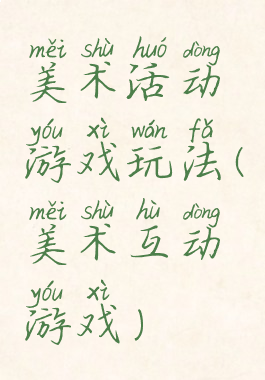 měi shù huó dòng
美术活动
yóu xì wán fǎ
游戏玩法(
měi shù hù dòng
美术互动
yóu xì
游戏)